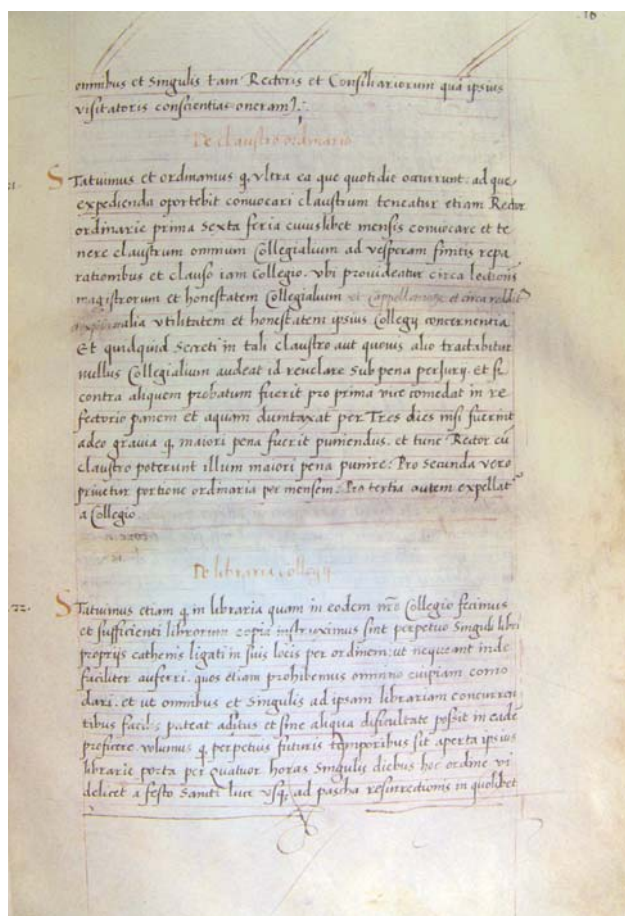 16
omnibus et singulis tam Rectoris et Consiliariorum quã ipsius
visitatoris conscientias oneram).
De claustro ordinario
21.
STatuimus et ordinamus q, vltra ea que quotidie occurrunt: ad que
expedienda oportebit convocari claustrum teneatur etiam Rector
ordinarie prima sexta feria cuiuslibet mensis convocare et te
nere claustrum omnium Collegialium ad vesperam finitis repa
rationibus et clauso iam Collegio. vbi provideatur circa lectiones
magistrorum et honestatem Collegialium et Cappellanorum et circa
alia vtilitatem et honestatem ipsius Collegij concernentia
Et quidquid secreti in tali claustro aut quovis alio tractabitur
nullus Collegialium audeat id revelare sub pena perjurij. et si
contra aliquem probatum fuerit pro prima vice comedat in re
fectorio panem et aquam dumtaxat per Tres dies nisi fuerint
adeo gravia q, maiori pena fuerit puniendus. et tunc Rector cũ
claustro poterunt illum maiori pena punire: Pro secunda vero
privetur portione ordinaria per mensem: Pro tertia autem expellatr
a Collegio
De libraria collegij
22.
STatuimus etiam q, in libraria quam in eodem nrõ Collegio fecimus
et sufficienti librorum copia instruximus sint perpetuo singuli libri
proprijs cathenis ligati in suis locis per ordinem: ut nequeant inde
faciliter auferri. quos etiam prohibemus omnino cuipiam como
dari. et ut omnibus et singulis ad ipsam librariam concurren
tibus facilis pateat aditus et sine aliqua dificultate possit in eadẽ
proficere. volumus q, perpetuis futuris temporibus sit aperta ipsius
librarie porta per quatuor horas singulis diebus hoc ordine vi
delicet a festo sancti luce vsq, ad pascha resurrectionis in quolibet